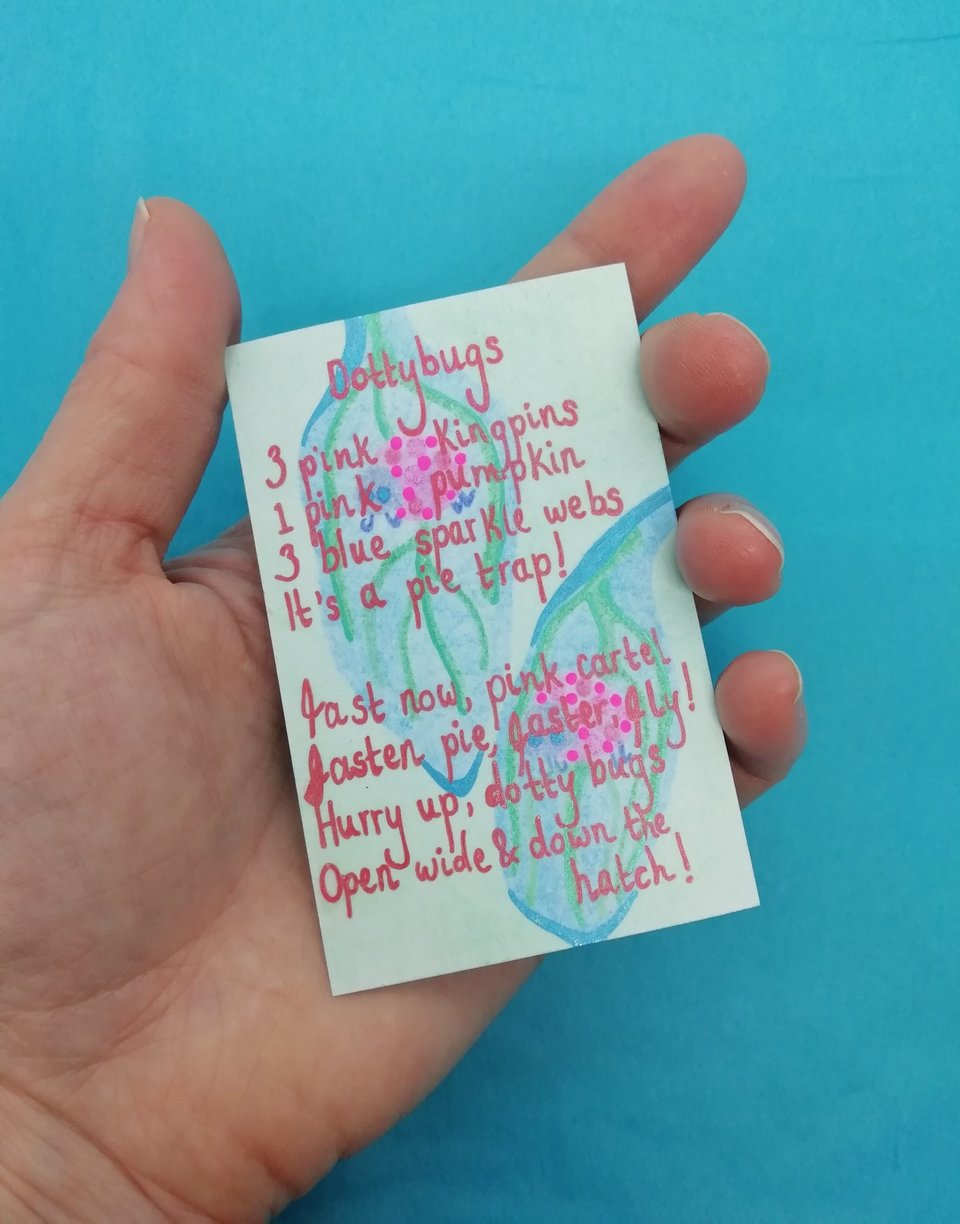 Dottybugs
3 pink Kingpins
1 pink pumpkin
3 blue sparkle webs
It's a pie trap!
fast now, pink cartel
fasten pie, faster, fly!
Hurry up, dotty bugs
Open wide & down the
hatch!